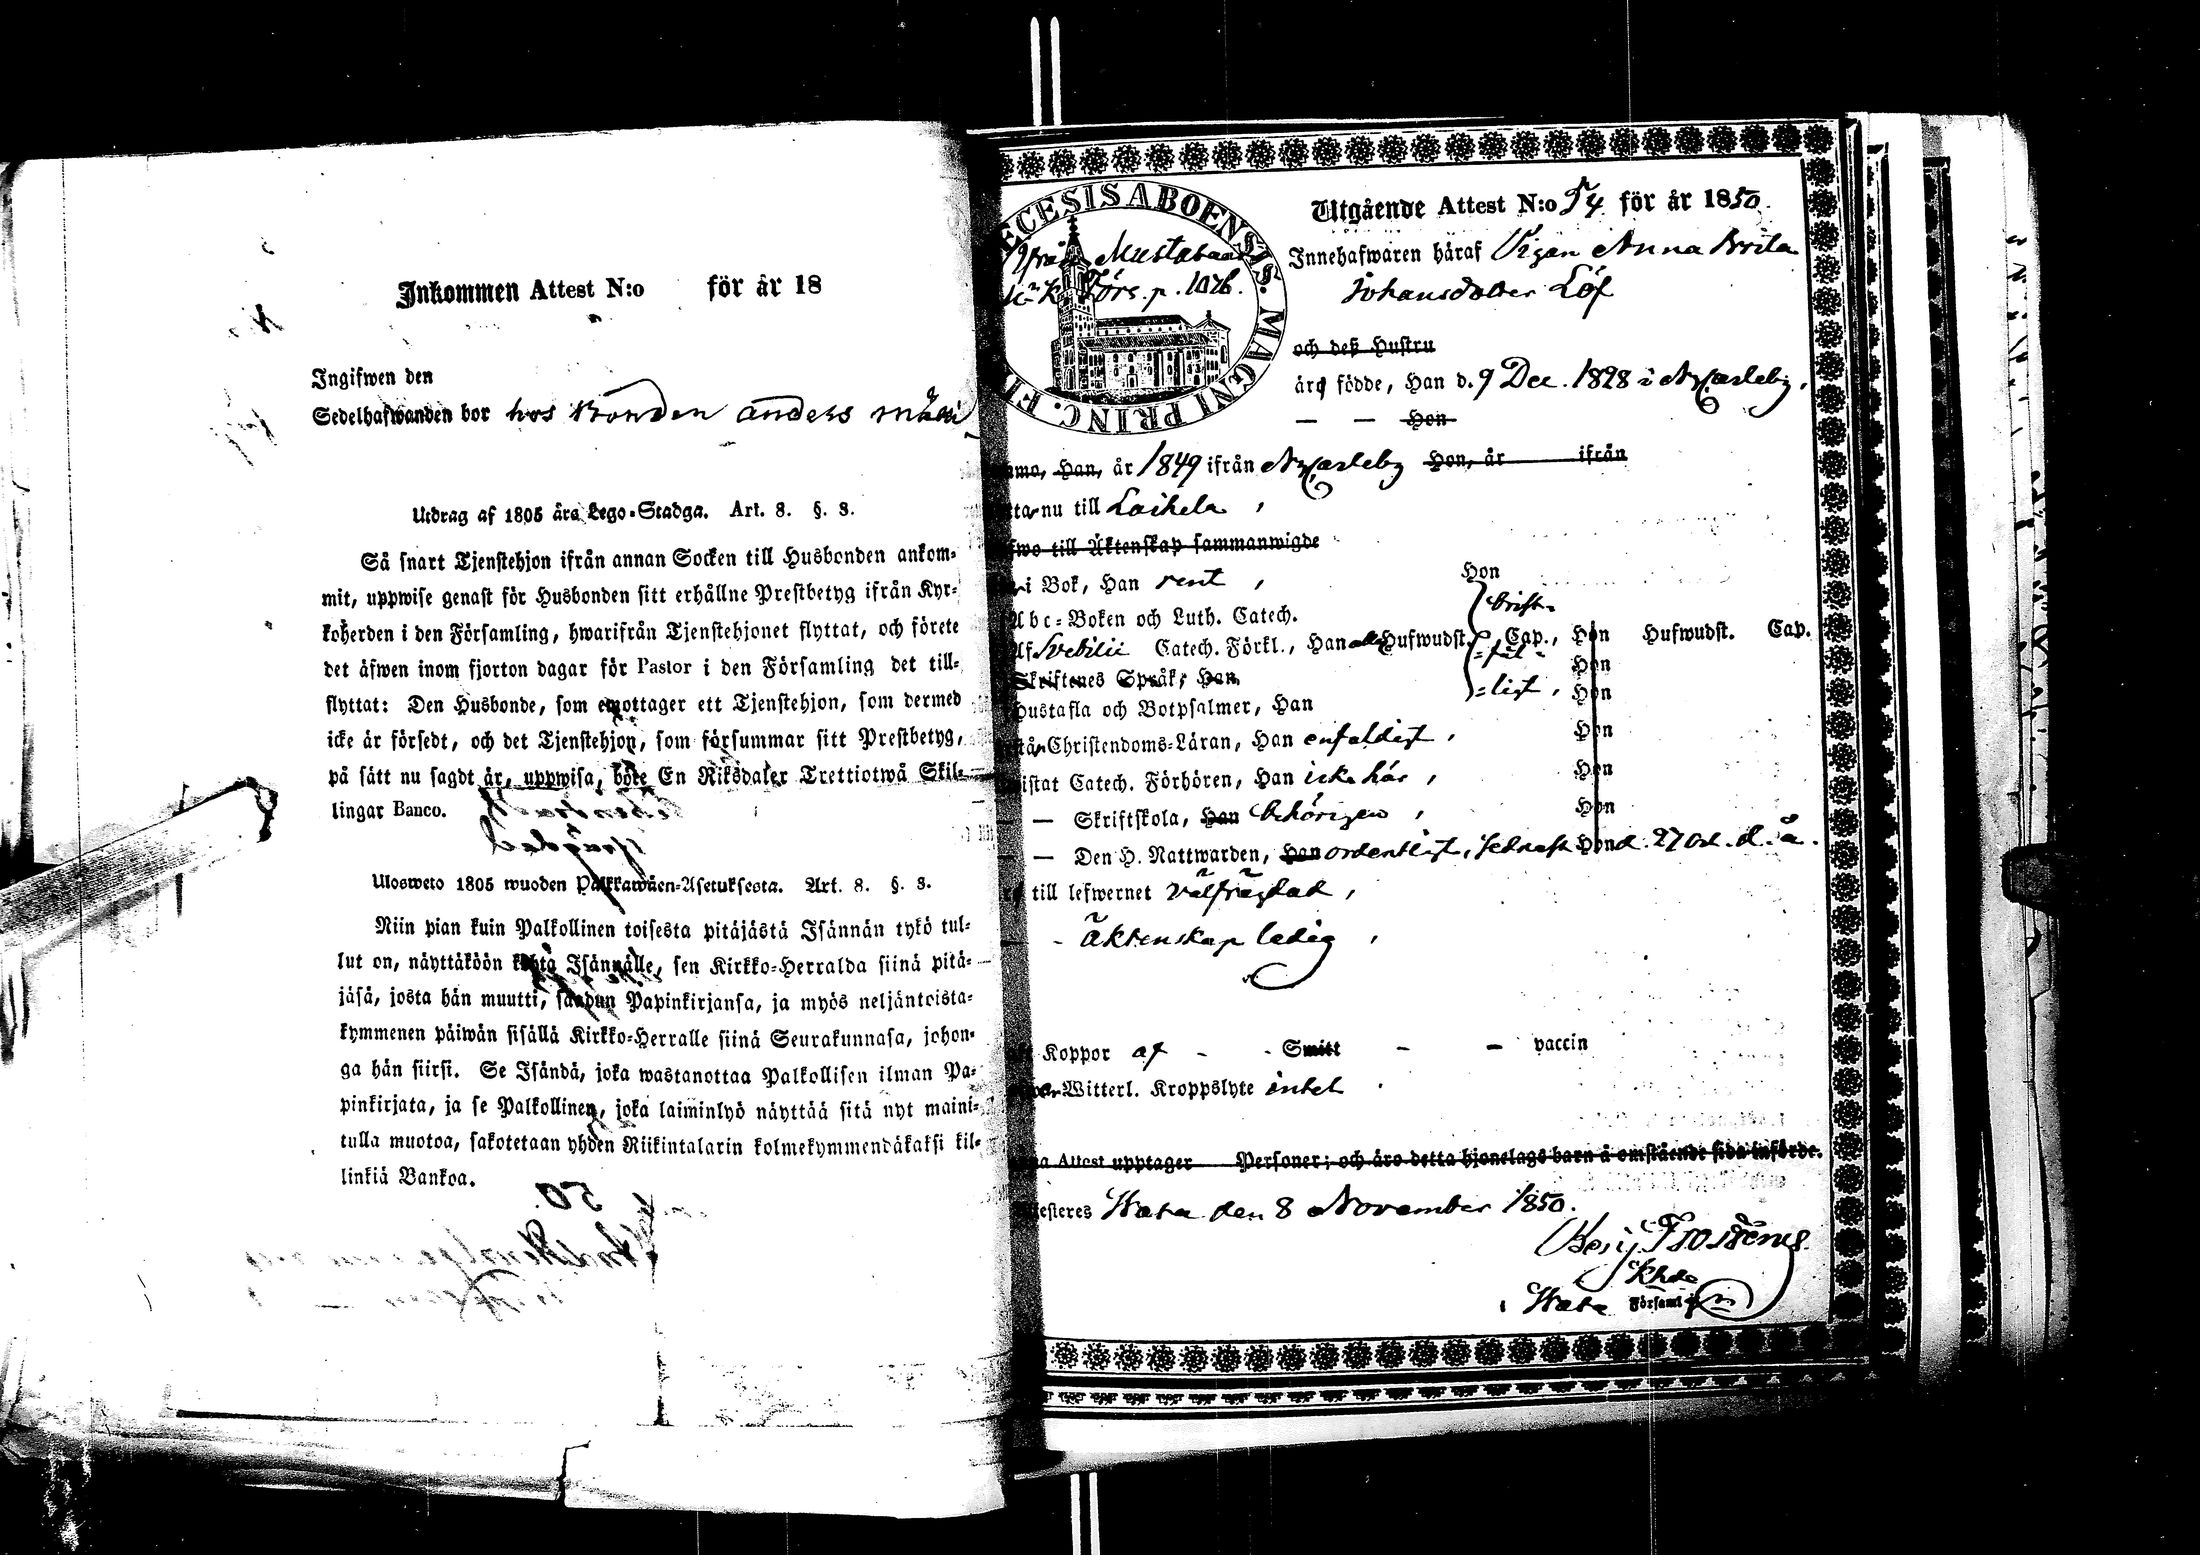 Inkommen Attest N:o för år 18
Ingifwen den
Sedelhafwanden bor hos Bonden anders
Utdrag af 1805 års Lego-Stadga. Art. 8. §. 3.
Så snart Tjenstehjon ifrån annan Socken till Husbonden ankom-
mit, uppwise genast för Husbonden sitt erhållne Prestbetyg ifrån Kyr-
koherden i den Församling, hwarifrån Tjenstehjonet flyttat, och förete
det äfwen inom fjorton dagar för Pastor i den Församling det till-
flyttat: Den Husbonde, som emottager ett Tjenstehjon, som dermed
icke är försedt, och det Tjenstehjon, som försummar sitt Prestbetyg,
på sätt nu sagdt är, uppwisa, böte En Riksdaler Trettiotwå Skil-
lingar Banco.
Ulosweto 1805 wuoden Palkkawäen-Asetuksesta. Art. 8. §. 3.
Niin pian kuin Palkollinen toisesta pitäjästä Isännän tykö tul-
lut on, näyttäköön kohta Isännälle, sen Kirkko-Herralda siinä pitä-
jäsä, josta hän muutti, saadun Papinkirjansa, ja myös neljäntoista-
kymmenen päiwän sisällä Kirkko-Herralle siinä Seurakunnasa, johon-
ga hän siirsi. Se Isändä, joka wastanottaa Palkollisen ilman Pa-
pinkirjata, ja se Palkollinen, joka laiminlyö näyttää sitä nyt maini-
tulla muotoa, sakotetaan yhden Riikintalarin kolmekymmendäkaksi kil-
linkiä Bankoa.
ECESIS ABOENSIS. MAGNI PRINC. FI
Utgående Attest N:o 54 för år 1850.
ifrån
p. 1076.
Innehafwaren häraf Pigan Anna Brita
Johansdotter Löf
och deß Hustru
äro födde, Han d. 9 Dec. 1828 i Nycarleby,
— — Hon
mmo, Han, år 1849 ifrån Nycarleby Hon, år ifrån
tta nu till Laihela,
fwo till Äktenskap sammanwigde
i Bok, Han rent, Hon
Abc-Boken och Luth. Catech. brist-
Af Svebilii Catech. Förkl., Han alla Hufwudst. Cap., Hon Hufwudst. Cap.
=fäl=
Skriftenes Språk, Han Hon
=ligt, Hon
Hustafla och Botpsalmer, Han
står Christendoms-Läran, Han enfaldigt, Hon
istat Catech. Förhören, Han icke här, Hon
— — Skriftskola, Han behörigen, Hon
— — Den H. Nattwarden, Han ordentligt, sednast Hon d. 27 Oct. d. å.
till lefwernet välfrägdad,
— - äktenskap ledig,
Koppor af - - Smitt - - vaccin
Witterl. Kroppslyte intet.
na Attest upptager Personer; och äro detta hjonelags barn å omstående sida införde.
testeres den 8 November 1850.
Frosterus
Khde
i Församl